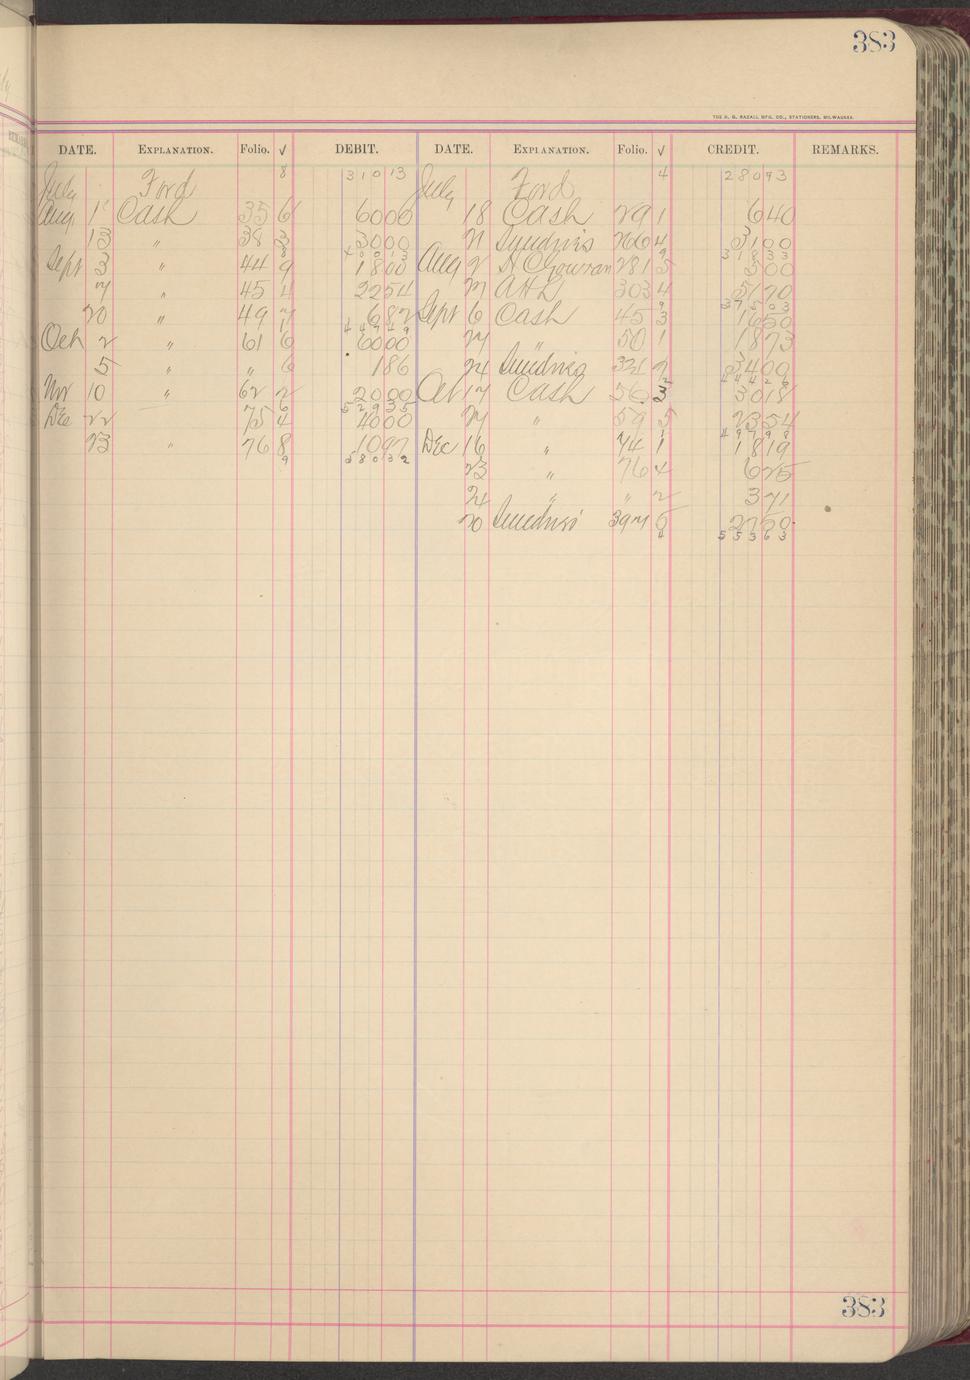 383
THE H. G. RAZALL MFG. CO., STATIONERS, MILWAUKEE.
DATE. EXPLANATION. Folio. √ DEBIT. DATE. EXPLANATION. Folio. √ CREDIT. REMARKS.
July Ford 8 310 13 July Ford 4 280 93
Aug 1 Cash 35 6 60 00 18 Cash 291 6 40
13 " 38 3 30 00 21 Sundries 266 4 31 00
400 13 318 33
Sept 3 " 44 9 18 00 Aug 2 281 5 5 00
7 " 45 4 22 54 27 303 4 51 70
375 03
20 " 49 7 6 82 Sept 6 Cash 45 3 16 50
447 49
Oct 2 " 61 6 60 00 27 50 1 18 73
5 " " 6 1 86 24 Sundries 321 7 34 00
444 26
Nov 10 " 62 2 20 00 Oct 17 Cash 56 3 30 18
529 35
Dec 22 75 4 40 00 27 " 59 5 23 54
497 98
23 " 76 8 10 97 Dec 16 " 74 1 18 19
9 580 32
23 " 76 4 6 25
24 " " 2 3 71
20 Sundries 397 6 27 50
4 553 63
383